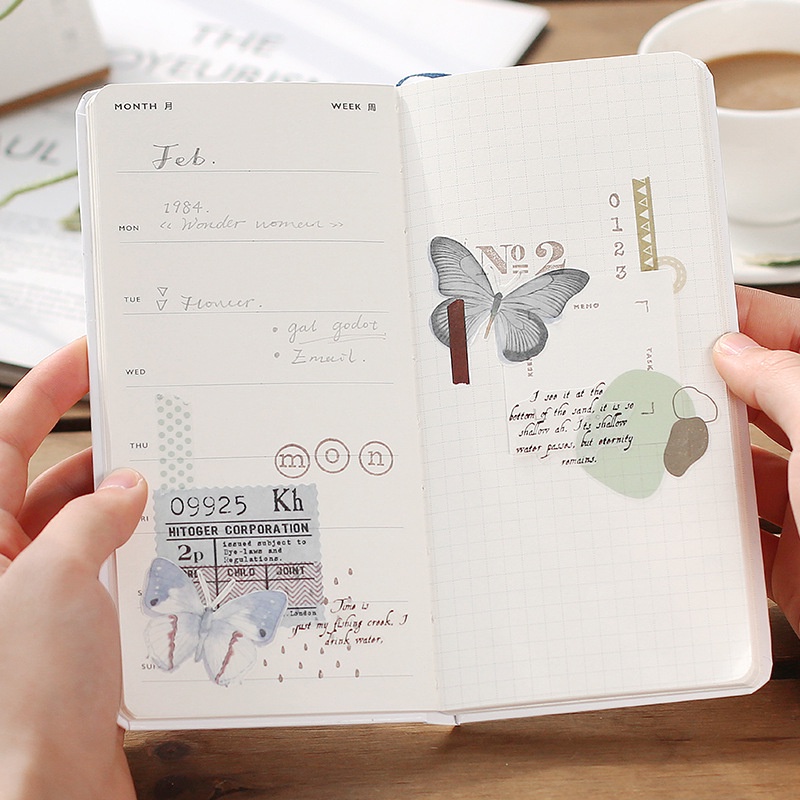 THE
MONTH 月
WEEK 周
Feb.
1984.
MON
<< Wonder women >>
TUE
Floncer.
• gal godot
• Email.
WED
THU
m o n
09925 Kh
HITOGER CORPORATION
2p
issued subject to
Bye-laws and
Regulations.
CHILD
JOINT
London
Time is
just my fishing creek. I
drink water,
SU
0
1
2
3
No 2
MEMO
TASK
I see it at the
bottom of the sand, it is so
shallow ah. Its shallow
water passes, but eternity
remains.